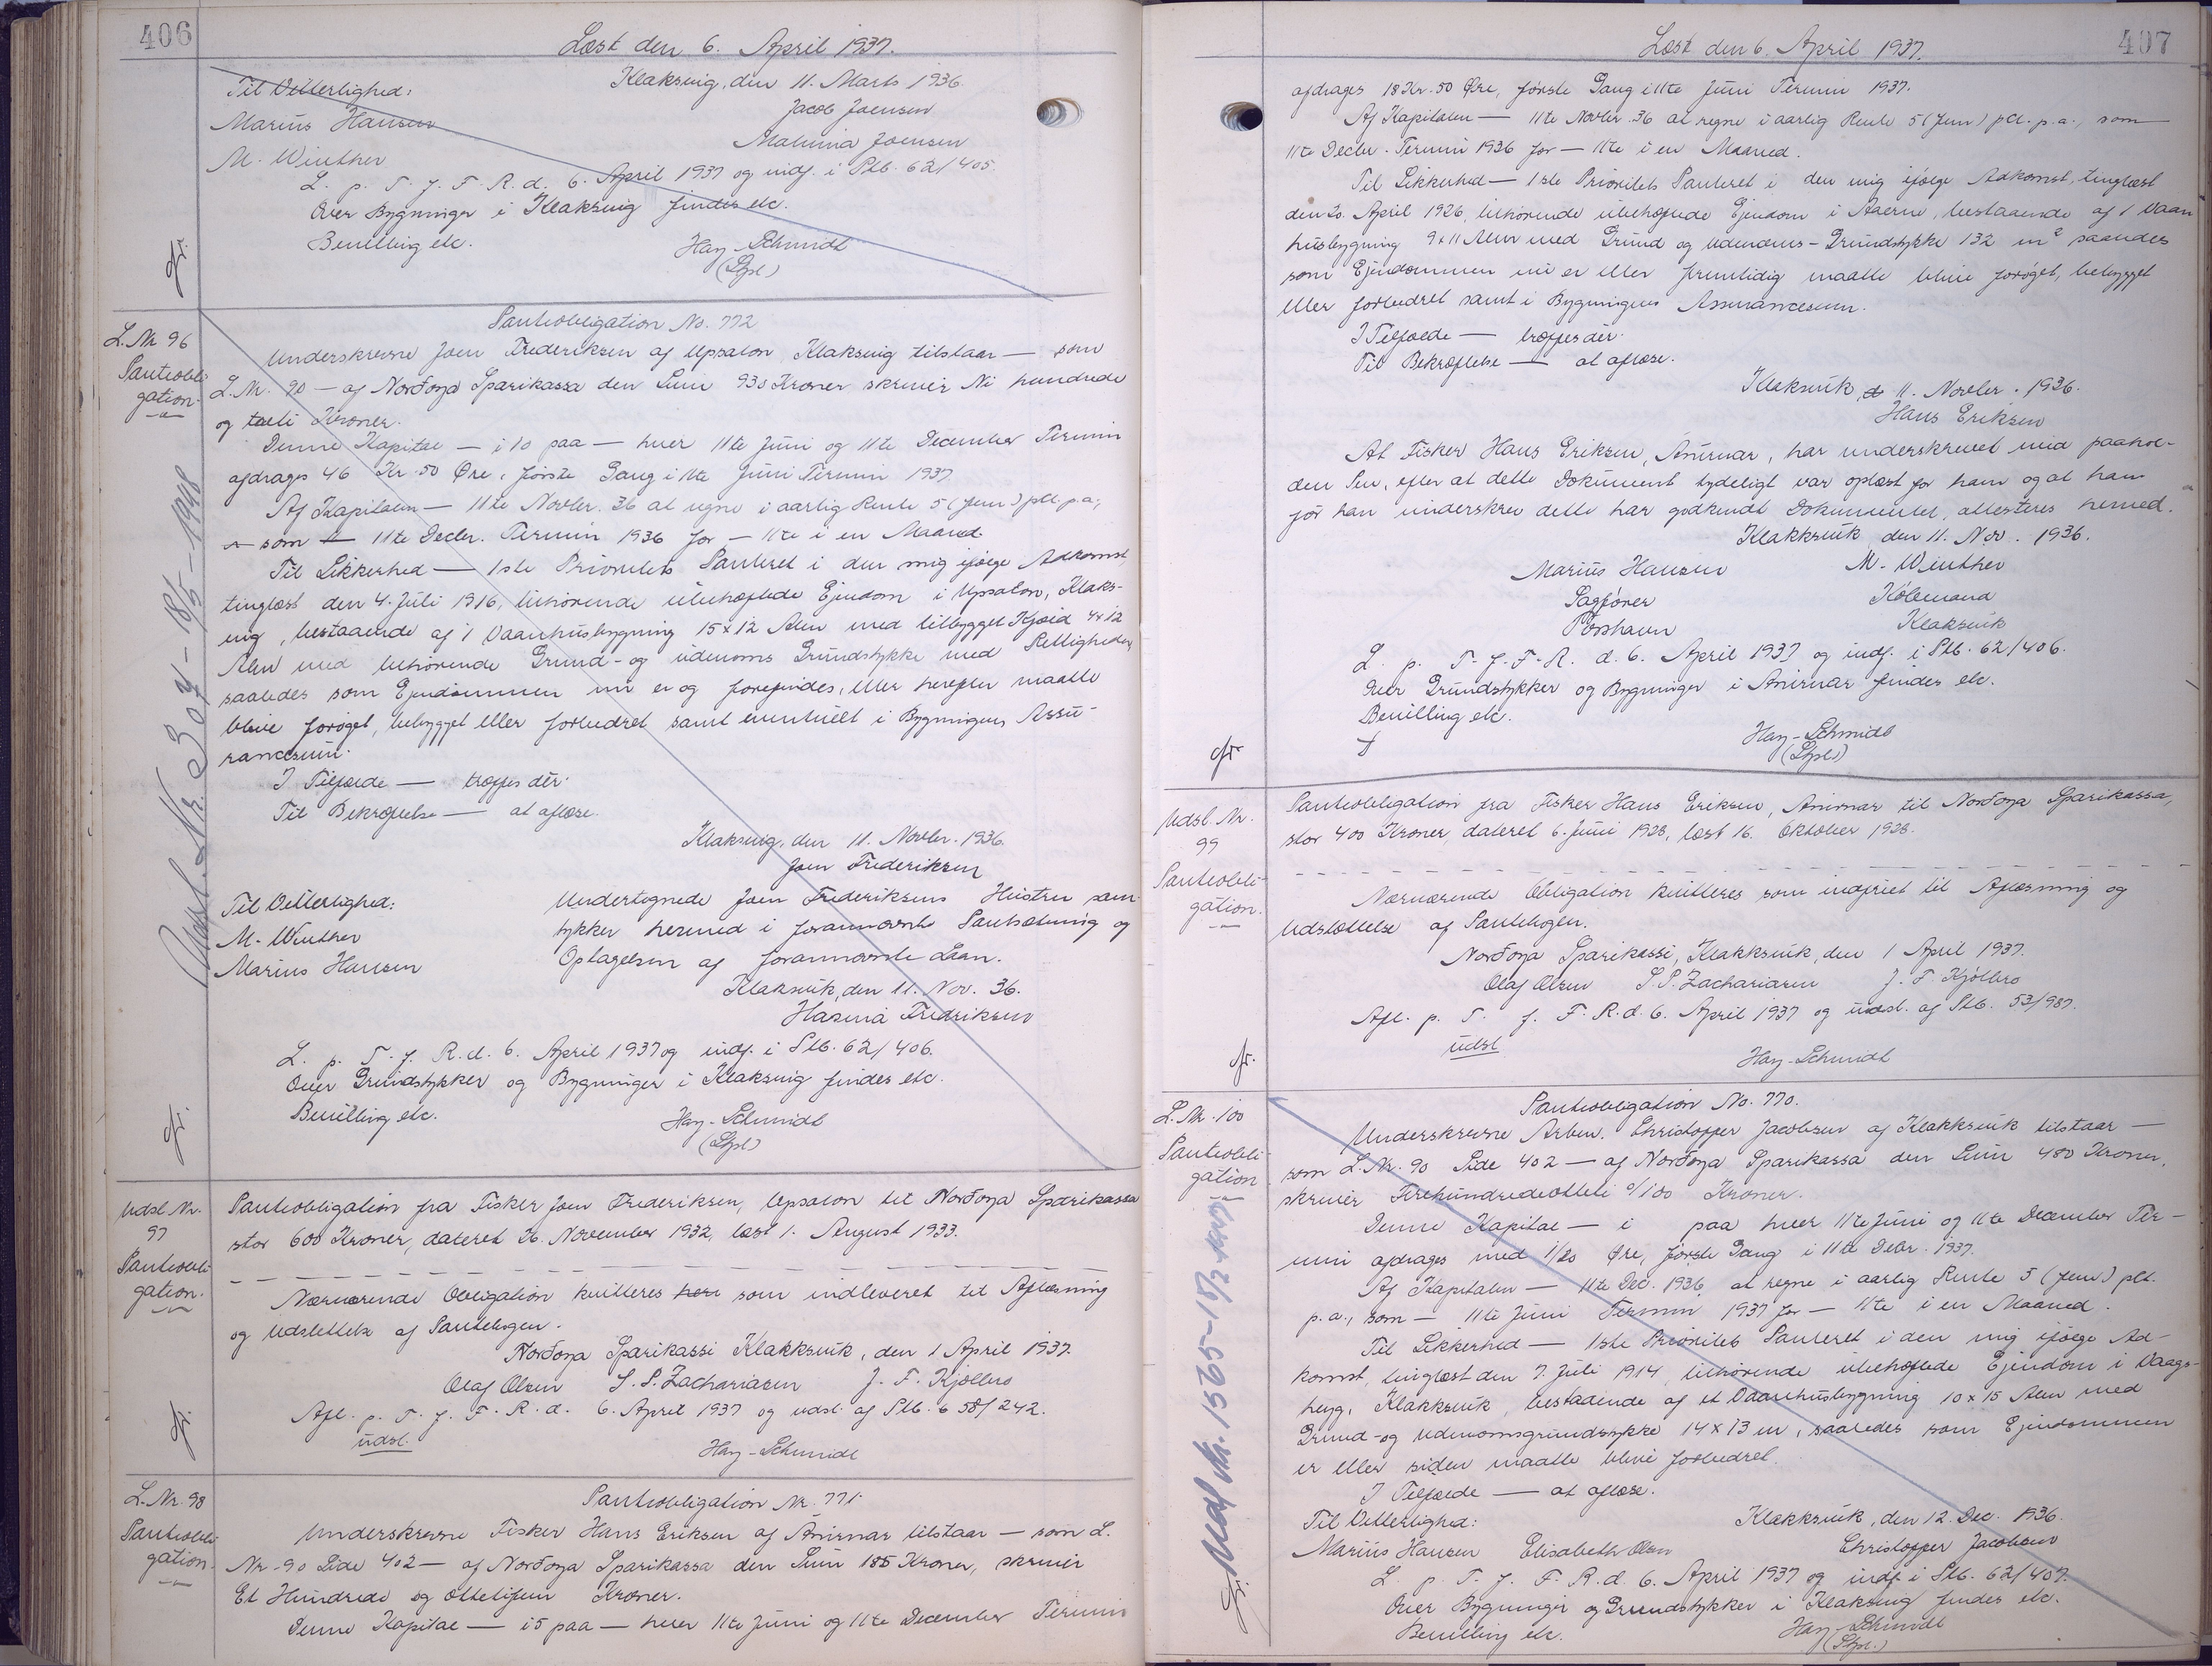 406
Læst den 6. April 1937.
Til Vitterlighed: Klaksvig, den 11. Marts 1936.
Marius Hansen Jacob Joensen
M. Winther Malvina Joensen
L. p. T. f. F. R. d. 6. April 1937 og indf. i Ptb. 62/405.
Over Bygninger i Klaksvig findes etc.
Bevilling etc. Hay-Schmidt
(Stpl.)
L. Nr. 96
Panteobli-
gation.
Panteobligation No. 772
Underskrevne Joen Frederiksen af Upsalon, Klaksvig tilstaar — som
L. Nr. 90 — af Norðoya Sparikassa den Sum 930 Kroner skriver Ni hundrede
og treti Kroner.
Denne Kapital — i 10 paa — hver 11te Juni og 11te December Termin
afdrages 46 Kr. 50 Øre, første Gang i 11te Juni Termin 1937
Af Kapitalen — 11te Novbr. 36 at regne i aarlig Rente 5 (fem) pCt. p.a.,
— som — 11te Decbr. Termin 1936 for — 11te i en Maaned.
Til Sikkerhed — 1ste Prioritets Panteret i den mig ifølge Adkomst,
tinglæst den 4. Juli 1916, tilhørende ubehæftede Ejendom i Upsalon, Klaks-
vig, bestaaende af 1 Vaanhusbygning 15x12 Alen med tilbygget Hjaid 4x12
Alen med tilhørende Grund- og udenoms Grundstykke med Rettigheder,
saaledes som Ejendommen nu er og forefindes, eller herefter maatte
blive forøget, bebygget eller forbedret samt eventuelt i Bygningens Assu-
rancesum.
I Tilfælde — træffes dér.
Til Bekræftelse — at aflæse.
Klaksvig, den 11. Novbr. 1936.
Joen Frederiksen
Til Vitterlighed: Undertegnede Joen Frederiksens Hustru sam-
M. Winther tykker hermed i forannævnte Pantsætning og
Marius Hansen Optagelsen af forannævnte Laan.
Klaksvik, den 11. Nov. 36.
Hasina Fredriksen
L. p. T. f. R. d. 6. April 1937 og indf. i Ptb. 62/406.
Over Grundstykker og Bygninger i Klaksvig findes etc.
Bevilling etc. Hay-Schmidt
(Stpl)
Udsl. Nr.
97
Panteobli-
gation.
Panteobligation fra Fisker Joen Frederiksen, Upsalon til Norðoya Sparikassa
stor 600 Kroner, dateret 26. November 1932, læst 1. August 1933.
Nærværende Obligation kvitteres som indleveret til Aflæsning
og Udslettelse af Pantebogen.
Norðoya Sparikassi Klakksvik, den 1 April 1937.
Olaf Olsen S. P. Zachariasen J. F. Kjølbro
Afl. p. T. f. F. R. d. 6. April 1937 og udsl. af Ptb. 58/242.
udsl. Hay-Schmidt
L. Nr. 98
Panteobli-
gation.
Panteobligation Nr. 771.
Underskrevne Fisker Hans Eriksen af Ánirnar tilstaar — som L.
Nr. 90 Side 402 — af Norðoya Sparikassa den Sum 185 Kroner, skriver
Et Hundrede og ottetifem Kroner.
Denne Kapital — i 5 paa — hver 11te Juni og 11te December Termin
407
Læst den 6. April 1937.
afdrages 18 Kr. 50 Øre, første Gang i 11te Juni Termin 1937.
Af Kapitalen — 11te Novbr. 36 at regne i aarlig Rente 5 (fem) pCt. p.a., som —
11te Decbr. Termin 1936 for — 11te i en Maaned.
Til Sikkerhed — 1ste Prioritets Panteret i den mig ifølge Adkomst, tinglæst
den 20. April 1926, tilhørende ubehæftede Ejendom i Aaerne, bestaaende af 1 Vaan
husbygning 9x11 Alen med Grund og Udenoms-Grundstykke 132 m² saaledes
som Ejendommen nu er eller fremtidig maatte blive forøget, bebygget
eller forbedret samt i Bygningens Assurancesum.
I Tilfælde — træffes dér.
Til Bekræftelse — at aflæse.
Klaksvik, 11. Novbr. 1936.
Hans Eriksen
At Fisker Hans Eriksen, Ánirnar, har underskrevet med paahol-
den Pen, efter at dette Dokument tydeligt var oplæst for ham og at han
før han underskrev dette har godkendt Dokumentet, attesteres hermed.
Klakksvik den 11. Nov. 1936.
Marius Hansen M. Winther
Sagfører Købmand
Tórshavn Klaksvik
L. p. T. f. F. R. d. 6. April 1937 og indf. i Ptb. 62/406.
Over Grundstykker og Bygninger i Anirnar findes etc.
Bevilling etc.
Hay-Schmidt
(Stpl)
Udsl. Nr.
99
Panteobli-
gation.
Panteobligation fra Fisker Hans Eriksen, Anirnar til Norðoya Sparikassa,
stor 400 Kroner, dateret 6. Juni 1928, læst 16. Oktober 1928.
Nærværende Obligation kvitteres som indfriet til Aflæsning og
Udslettelse af Pantebogen.
Norðoya Sparikassi, Klakksvik, den 1 April 1937.
Olaf Olsen S. P. Zachariasen J. F. Kjølbro
Afl. p. T. f. F. R. d. 6. April 1937 og udsl. af Ptb. 53/987.
udsl Hay-Schmidt
L. Nr. 100
Panteobli-
gation
Panteobligation No. 770.
Underskrevne Arbm. Christoffer Jacobsen af Klakksvik tilstaar —
som L. Nr. 90 Side 402 — af Norðoya Sparikassa den Sum 480 Kroner,
skriver Firehundredeotteti 0/100 Kroner.
Denne Kapital — i paa hver 11te Juni og 11te December Ter-
min afdrages med 1/20 Øre, første Gang i 11te Debr. 1937.
Af Kapitalen — 11te Dec. 1936 at regne i aarlig Rente 5 (fem) pCt.
p.a., som — 11te Juni Termin 1937 for — 11te i en Maaned.
Til Sikkerhed — 1ste Prioritets Panteret i den mig ifølge Ad-
komst, tinglæst den 7. Juli 1914, tilhørende ubehæftede Ejendom i Vaags-
heyg, Klakksvik, bestaaende af et Vaanhusbygning 10x15 Alen med
Grund- og Udenomsgrundstykke 14x13 m, saaledes som Ejendommen
er eller siden maatte blive forbedret.
I Tilfælde — at aflæse.
Til Vitterlighed: Klakksvik, den 12. Dec. 1936.
Marius Hansen Elisabeth Olsen Christoffer Jacobsen
L. p. T. f. F. R. d. 6. April 1937 og indf. i Ptb. 62/407.
Over Bygninger og Grundstykker i Klaksvig findes etc.
Bevilling etc. Hay-Schmidt
(Stpl.)